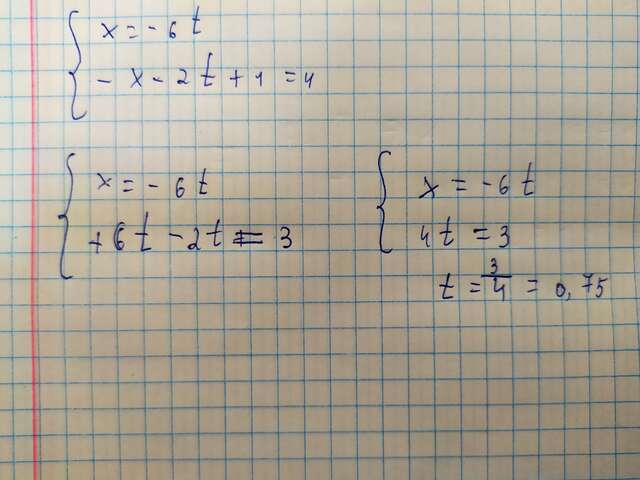 x = - 6t
- x - 2t + 1 = 4
x = - 6t
+ 6t - 2t = 3
x = - 6t
4t = 3
t = 3/4 = 0,75